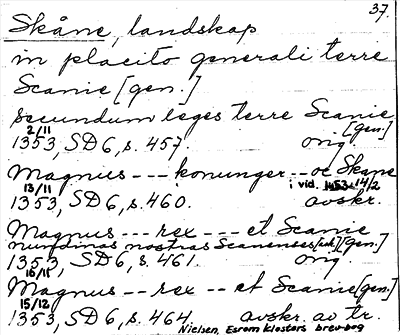 37.
Skåne, landskap
in placito generali terre
Scanie [gen.]
secundum leges terre Scanie
[gen.]
2/11
1353, SD 6, s. 457. orig.
Magnus --- konunger -- oc Skane
13/11 i vid. 1453 14/2
1353, SD 6, s. 460. avskr.
Magnus --- rex --- et Scanie
nundinas nostras Scanenses [gen.]
1353, SD 6, s. 461. orig.
16/11
Magnus -- rex -- et Scanie [gen.]
15/12
1353, SD 6, s. 464. avskr. av tr.
Nielsen, Esrom klosters brevbog